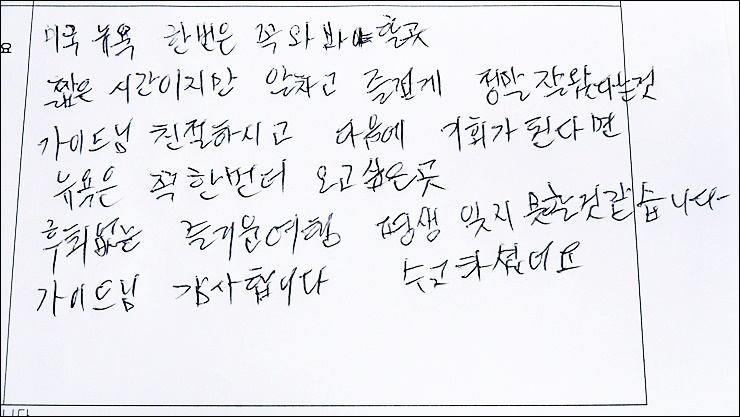 미국 뉴욕 한번은 꼭 와 봐야 할곳
짧은 시간이지만 알차고 즐겁게 정말 잘왔다는것
가이드님 친절하시고 다음에 기회가 된다면
뉴욕은 꼭 한번더 오고 싶은곳
후회없는 즐거운여행 평생 잊지 못할것같습니다-
가이드님 감사합니다
요